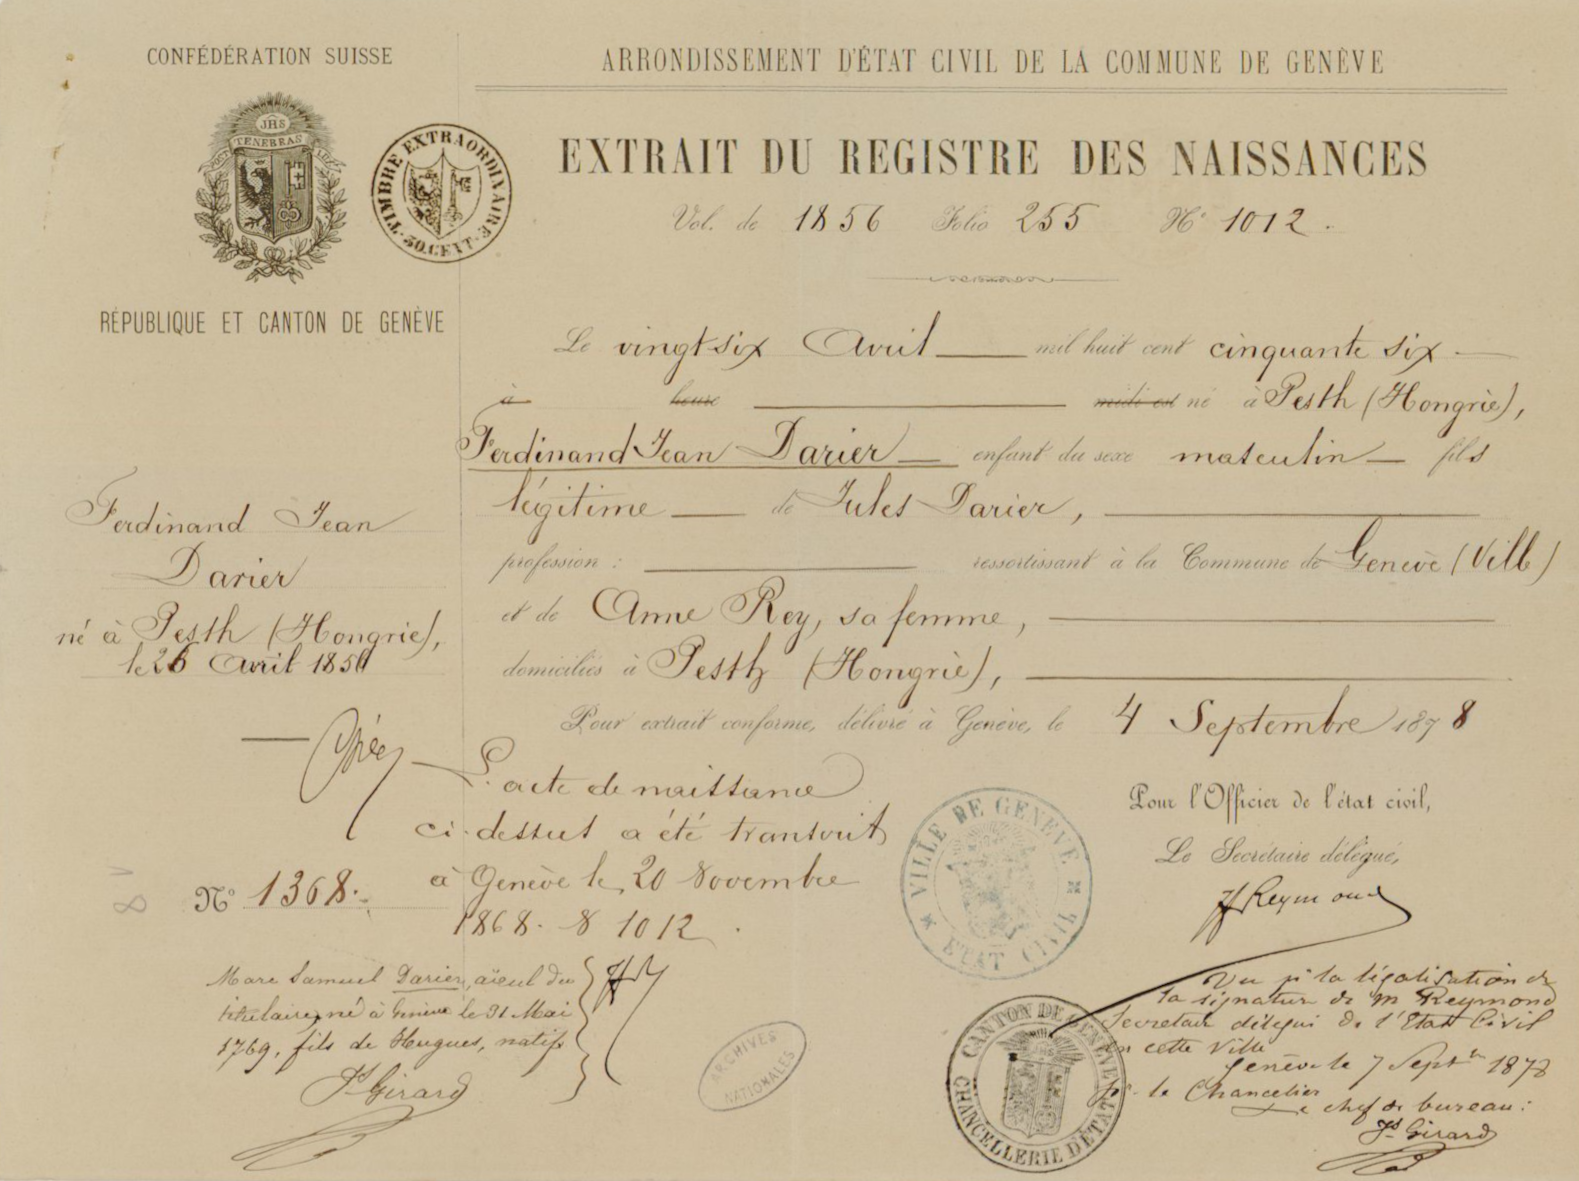 CONFÉDÉRATION SUISSE
JHS
POST TENEBRAS LUX
TIMBRE EXTRAORDINAIRE
50 CENT.
RÉPUBLIQUE ET CANTON DE GENÈVE
Ferdinand Jean
Darier
né à Pesth (Hongrie),
le 26 Avril 1856
N° 1368.
ARRONDISSEMENT D'ÉTAT CIVIL DE LA COMMUNE DE GENÈVE
EXTRAIT DU REGISTRE DES NAISSANCES
Vol. de 1856 Folio 255 N° 1012.
Le vingt-six Avril mil huit cent cinquante six
à heure midi est né à Pesth (Hongrie),
Ferdinand Jean Darier enfant du sexe masculin fils
légitime de Jules Darier,
profession : ressortissant à la Commune de Genève (Ville)
et de Anne Rey, sa femme,
domiciliés à Pesth (Hongrie),
Pour extrait conforme, délivré à Genève, le 4 Septembre 1878
L'acte de naissance
ci-dessus a été transcrit
à Genève le 20 Novembre
1868. 1012.
Marc Samuel Darier, aïeul du
titulaire, né à Genève le 31 Mai
1769, fils de Hugues, natif
Js Girard
VILLE DE GENEVE
ETAT CIVIL
Pour l'Officier de l'état civil,
Le Secrétaire délégué,
Reymond
Vu pr la légalisation de
la signature de M Reymond
Secrétaire délégué de l'Etat Civil
en cette Ville
Genève le 7 Septre 1878
pr le Chancelier
Le chef de bureau :
Js Girard
CANTON DE GENÈVE
CHANCELLERIE D'ÉTAT
ARCHIVES
NATIONALES